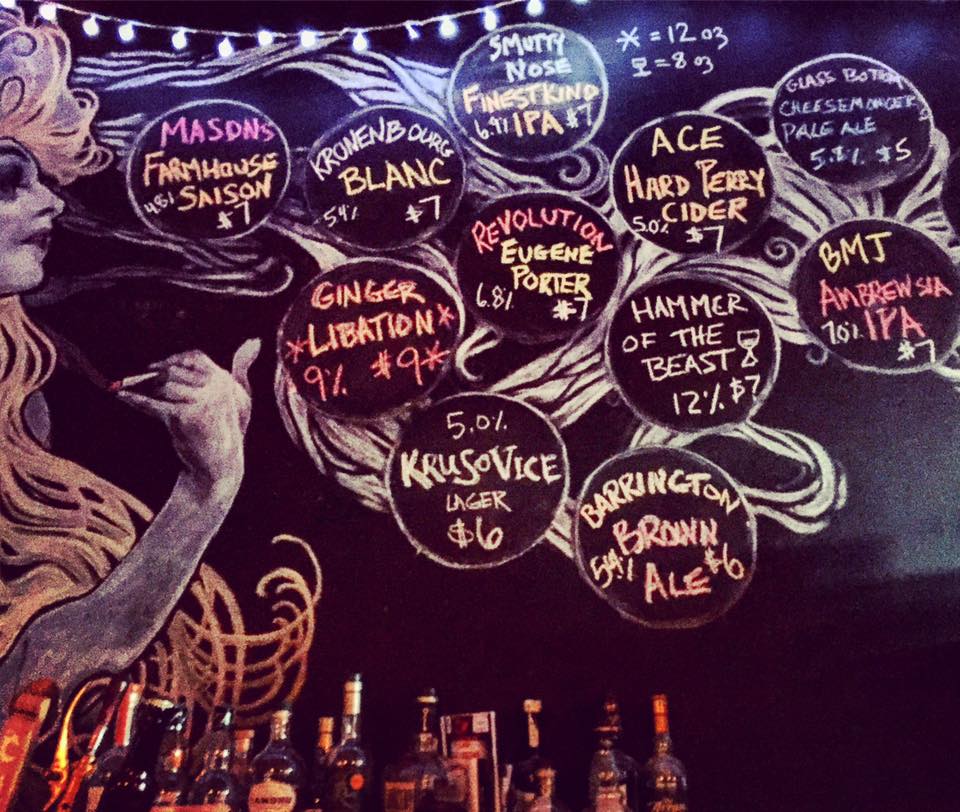 SMUTTY
NOSE
FINESTKIND
6.9% IPA $7
* = 12 oz
= 8 oz
GLASS BOTTOM
CHEESEMONGER
PALE ALE
$5
MASONS
FARMHOUSE
SAISON
4.8%
$7
KRONENBOURG
BLANC
5.4% $7
ACE
HARD PERRY
CIDER
5.0% $7
REVOLUTION
EUGENE
PORTER
6.8% $7
BMJ
AMBREWSIA
IPA
7.0%
$7
GINGER
*LIBATION*
9% $9*
HAMMER
OF THE
BEAST
12% $7
5.0%
KRUSOVICE
LAGER
$6
BARRINGTON
BROWN
ALE
$6